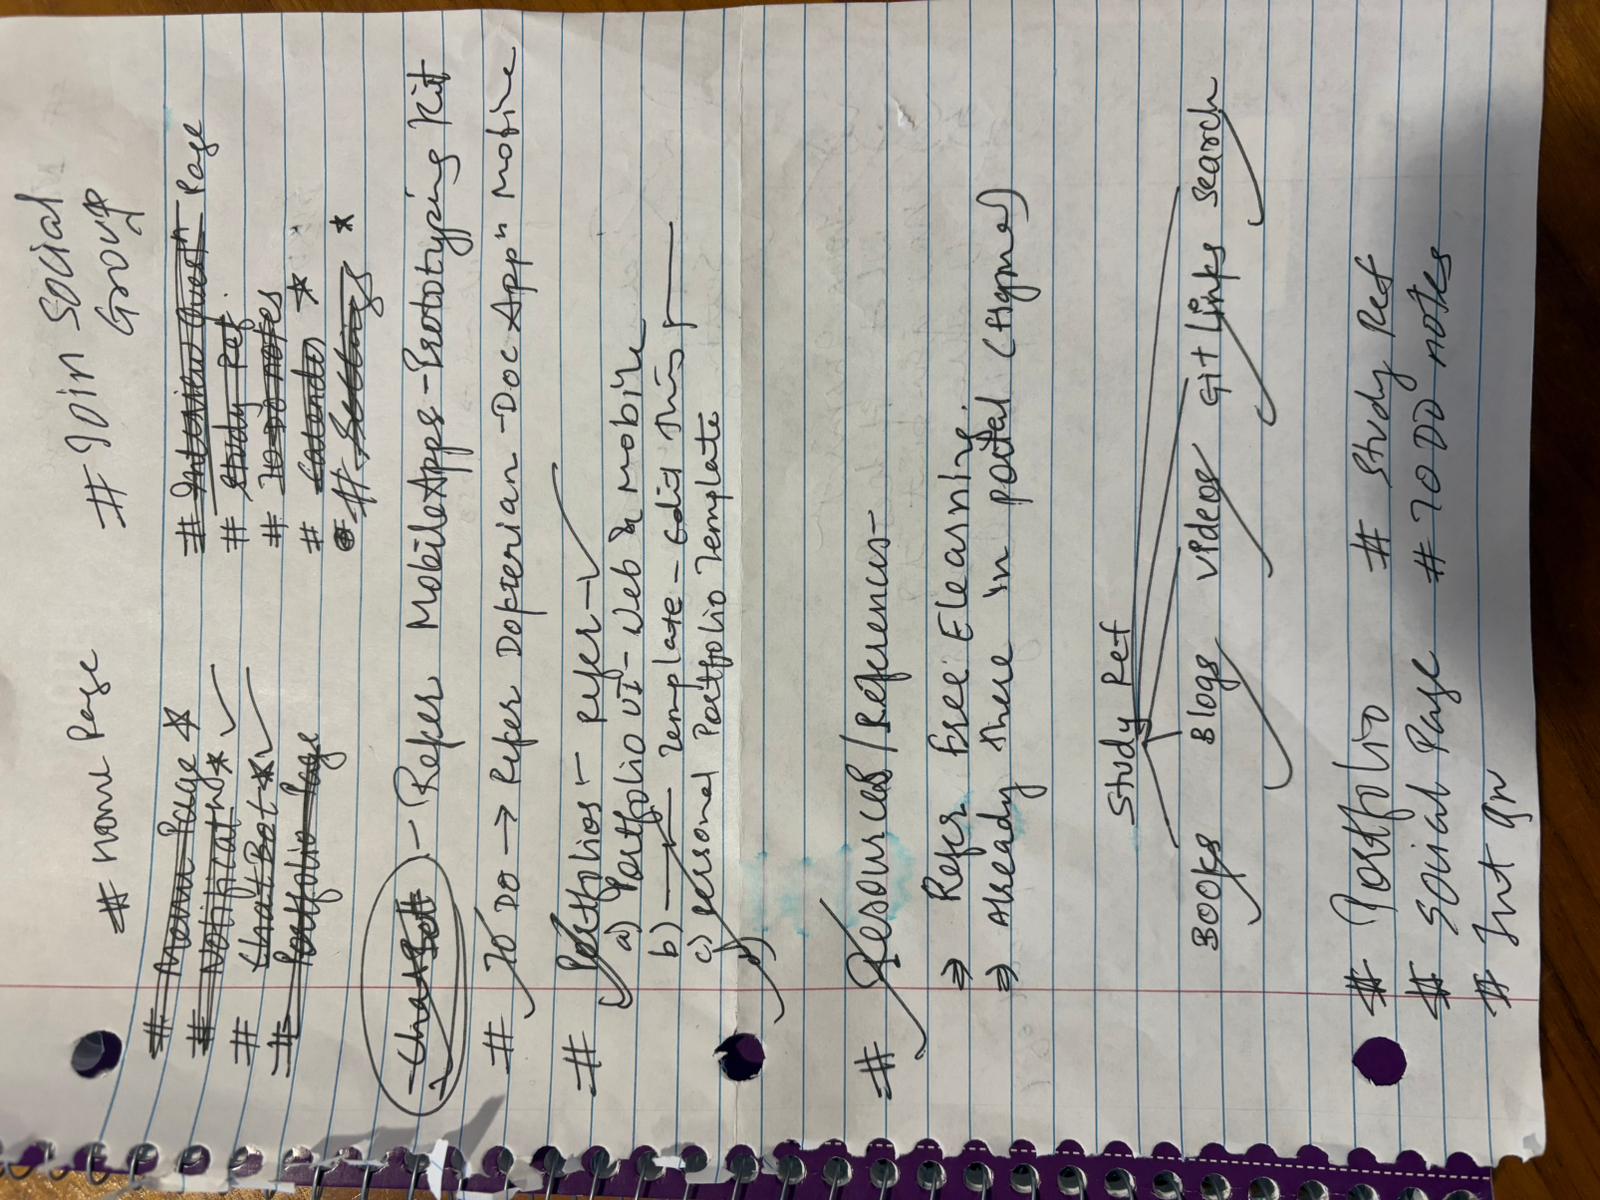 # Home Page
# Join Social
Group
# Menu Page
# Notificatn
# ChatBot
# Portfolio Page
# Interview Questn Page
# Study Ref.
# To Do notes
# Calendar
# Settings
ChatBott - Refer MobileApps - Prototyping Kit
# To DO → Refer Dopterian - Doc Appn Mobile
# Portfolios - Refer -
a) Portfolio UI - Web & Mobile
b) Template - Edit This
c) Personal Portfolio Template
# Resources / References -
⇒ Refer Free Elearning
⇒ Already there in portal (Hype)
Study Ref
Books Blogs Videos Git Links Search
# Portfolio # Study Ref
# Social Page # TO DO notes
# Int Qn